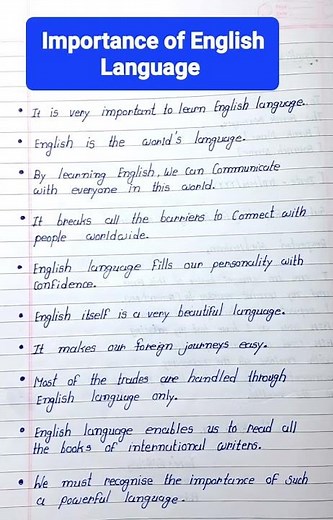 Importance of English
Language
• It is very important to learn English language.
• English is the world's language.
• By learning English, we can Communicate
with everyone in this world.
• It breaks all the barriers to Connect with
people worldwide.
• English language fills our personality with
Confidence.
• English itself is a very beautiful language.
• It makes our foreign journeys easy.
• Most of the trades are handled through
English language only.
• English language enables us to read all
the books of international writers.
• We must recognise the importance of such
a powerful language.